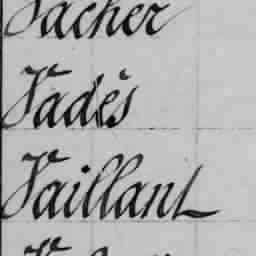 Vacher
Vadès
Vaillant